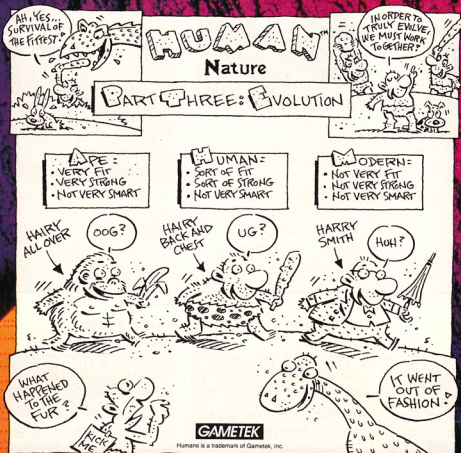 AH, YES...
SURVIVAL OF
THE FITTEST!
HUMAN™
Nature
PART THREE: EVOLUTION
IN ORDER TO
TRULY EVOLVE,
WE MUST WORK
TOGETHER!
APE =
• VERY FIT
• VERY STRONG
• NOT VERY SMART
HUMAN =
• SORT OF FIT
• SORT OF STRONG
• NOT VERY SMART
MODERN =
• NOT VERY FIT
• NOT VERY STRONG
• NOT VERY SMART
HAIRY
ALL OVER
OOG?
HAIRY
BACK AND
CHEST
UG?
HARRY
SMITH
HUH?
WHAT
HAPPENED
TO THE
FUR?
KICK
ME
IT WENT
OUT OF
FASHION.
GAMETEK
Humans is a trademark of Gametek, Inc.